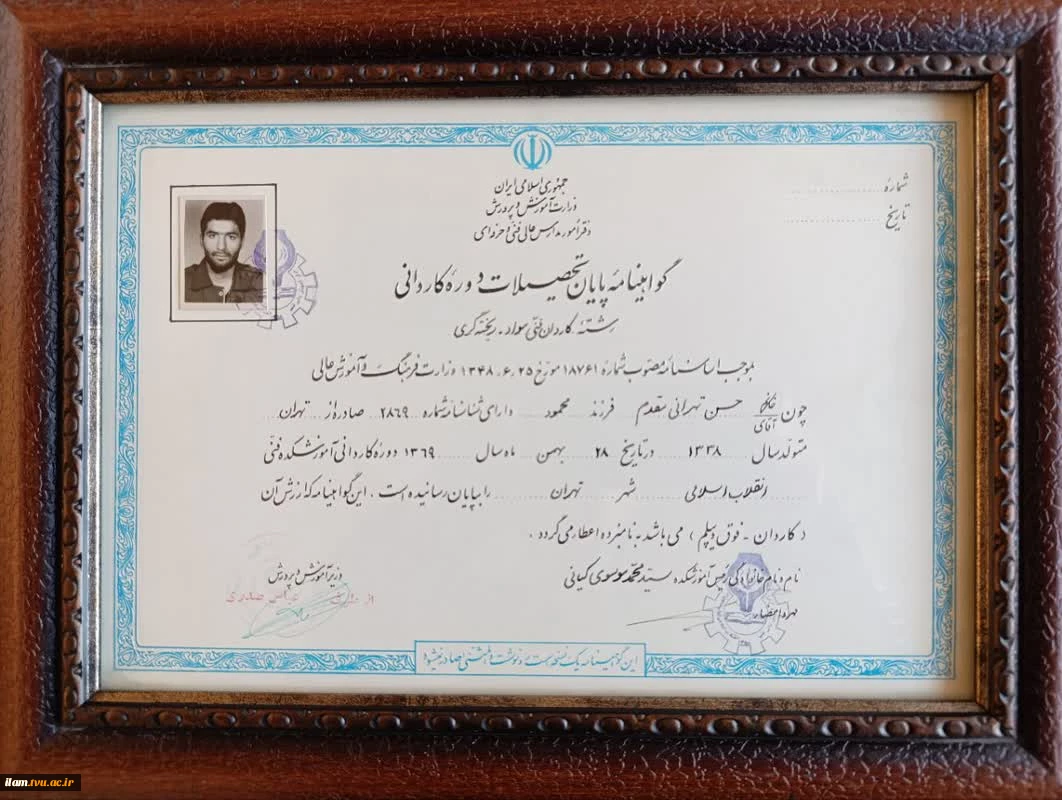 شماره
تاریخ
جمهوری اسلامی ایران
وزارت آموزش و پرورش
دفتر امور مدارس عالی فنی و حرفه‌ای
گواهینامه پایان تحصیلات دوره کاردانی
رشته کاردان فنی مواد - ریخته گری
بموجب اساسنامه مصوب شماره ۱۸۷۶۱ مورخ ۲۵ ر ۶ ر ۱۳۴۸ وزارت فرهنگ و آموزش عالی
چون خانم آقای حسن تهرانی مقدم فرزند محمود دارای شناسنامه شماره ۲۸۶۹ صادره از تهران
متولد سال ۱۳۳۸ در تاریخ ۲۸ بهمن ماه سال ۱۳۶۹ دوره کاردانی آموزشکده فنی
انقلاب اسلامی شهر تهران را بپایان رسانیده است ، این گواهینامه که ارزش آن
( کاردان - فوق دیپلم ) می باشد به نامبرده اعطا می گردد .
نام و نام خانوادگی رئیس آموزشکده سید محمد موسوی کیانی
مهر و امضاء
وزیر آموزش و پرورش
از طرف عباس صدری
این گواهینامه یک نسخه است و رونوشت یا المثنی صادر نمیشود
ilam.tvu.ac.ir